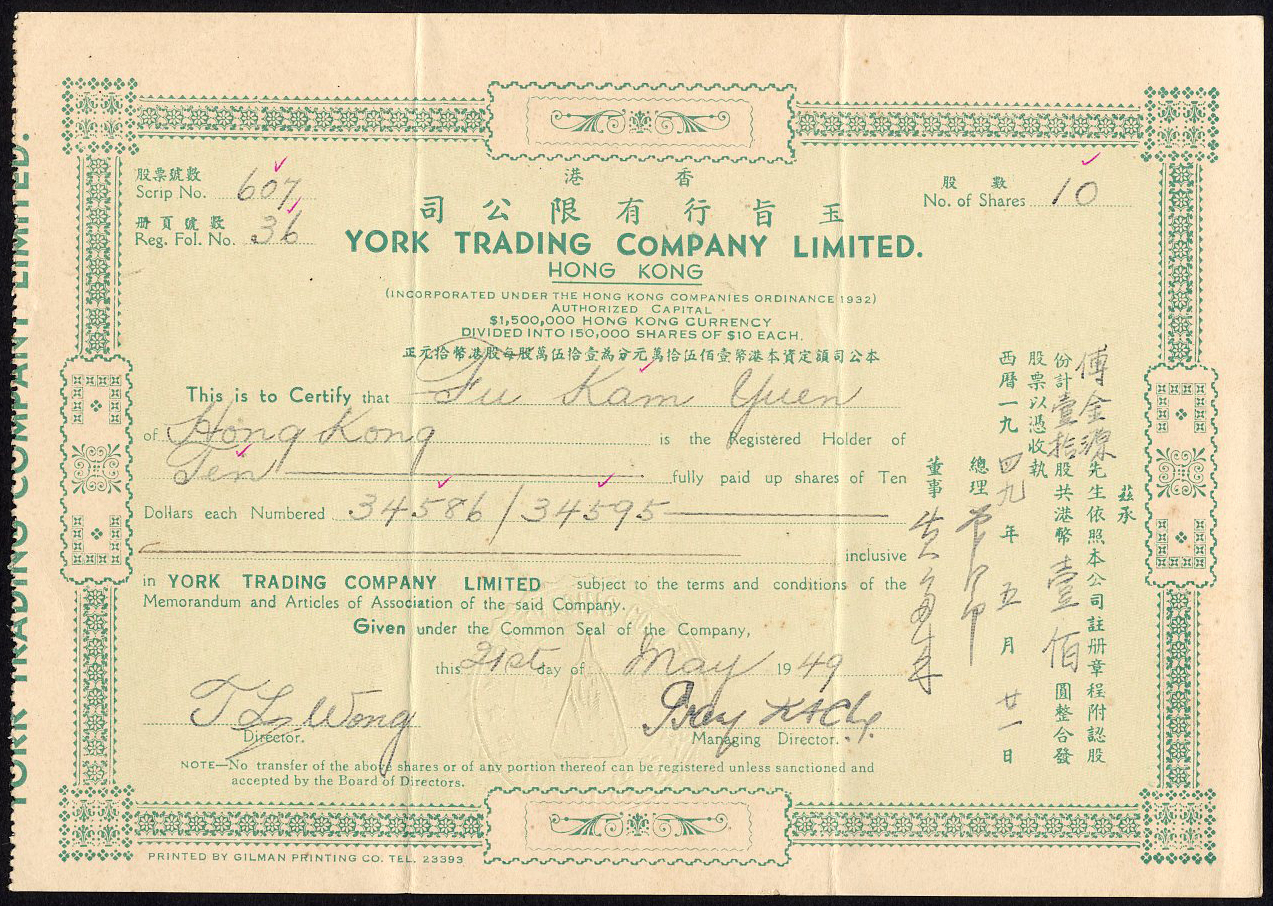 YORK TRADING COMPANY LIMITED.
股票號數
Scrip No. 607
冊頁號數
Reg. Fol. No. 36
港 香
股數
No. of Shares 10
司公限有行旨玉
YORK TRADING COMPANY LIMITED.
HONG KONG
(INCORPORATED UNDER THE HONG KONG COMPANIES ORDINANCE 1932)
AUTHORIZED CAPITAL
$1,500,000 HONG KONG CURRENCY
DIVIDED INTO 150,000 SHARES OF $10 EACH.
正元拾幣港股每股萬伍拾壹為分元萬拾伍佰壹幣港本資定額司公本
This is to Certify that Fu Kam Yuen
of Hong Kong is the Registered Holder of
Ten fully paid up shares of Ten
Dollars each Numbered 34586/34595
inclusive
in YORK TRADING COMPANY LIMITED subject to the terms and conditions of the
Memorandum and Articles of Association of the said Company.
Given under the Common Seal of the Company,
this 21st day of May 1949
T L Wong
Director.
Managing Director.
NOTE—No transfer of the above shares or of any portion thereof can be registered unless sanctioned and
accepted by the Board of Directors.
茲承
傅金源先生依照本公司註册章程附認股
份計壹拾股共港幣壹佰圓整合發
股票以憑收執
西曆一九四九年五月廿一日
總理
董事
PRINTED BY GILMAN PRINTING CO. TEL. 23393